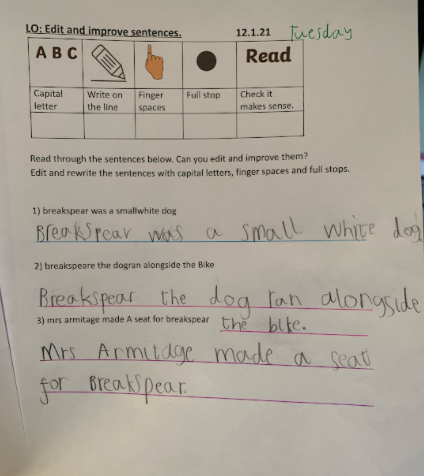 LO: Edit and improve sentences. 12.1.21 Tuesday
A B C Read
Capital letter Write on the line Finger spaces Full stop Check it makes sense.
Read through the sentences below. Can you edit and improve them?
Edit and rewrite the sentences with capital letters, finger spaces and full stops.
1) breakspear was a smallwhite dog
Breakspear was a small white dog
2) breakspeare the dogran alongside the Bike
Breakspear the dog ran alongside
3) mrs armitage made A seat for breakspear the bike.
Mrs Armitage made a seat
for Breakspear.